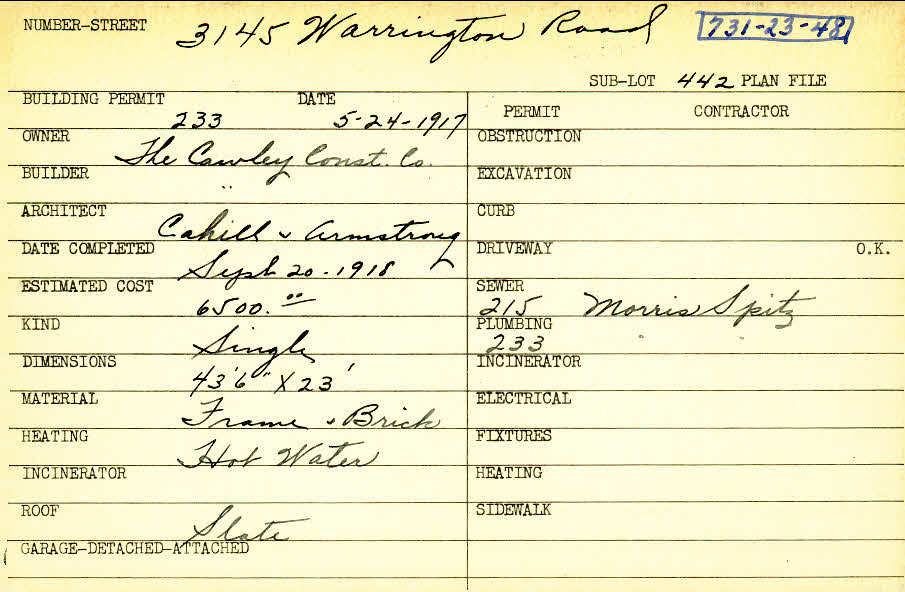 NUMBER-STREET 3145 Warrington Road 731-23-48
SUB-LOT 442 PLAN FILE
BUILDING PERMIT DATE
233 5-24-1917
PERMIT CONTRACTOR
OWNER The Cawley Const. Co.
OBSTRUCTION
BUILDER "
EXCAVATION
ARCHITECT Cahill & Armstrong
CURB
DATE COMPLETED Sept 20-1918
DRIVEWAY O.K.
ESTIMATED COST 6500.00
SEWER 215 Morris Spitz
KIND Single
PLUMBING 233 " "
DIMENSIONS 43'6" X 23'
INCINERATOR
MATERIAL Frame & Brick
ELECTRICAL
HEATING Hot Water
FIXTURES
INCINERATOR
HEATING
ROOF Slate
SIDEWALK
GARAGE-DETACHED-ATTACHED